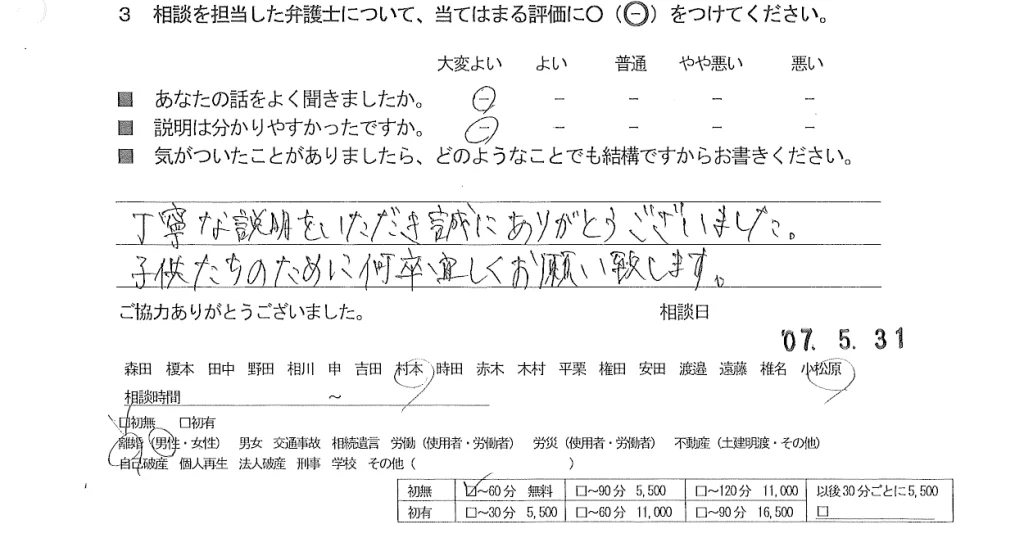 3 相談を担当した弁護士について、当てはまる評価に○（㊀）をつけてください。
大変よい よい 普通 やや悪い 悪い
■ あなたの話をよく聞きましたか。 － － － － －
■ 説明は分かりやすかったですか。 － － － － －
■ 気がついたことがありましたら、どのようなことでも結構ですからお書きください。
丁寧な説明をいただき誠にありがとうございました。
子供たちのために何卒宜しくお願い致します。
ご協力ありがとうございました。 相談日
'07. 5. 31
森田 榎本 田中 野田 相川 申 吉田 村本 時田 赤木 木村 平栗 権田 安田 渡邉 遠藤 椎名 小松原
相談時間 ～
□初無 □初有
離婚（男性・女性） 男女 交通事故 相続遺言 労働（使用者・労働者） 労災（使用者・労働者） 不動産（土建明渡・その他）
自己破産 個人再生 法人破産 刑事 学校 その他（ ）
初無 ☑～60分 無料 □～90分 5,500 □～120分 11,000 以後30分ごとに5,500
初有 □～30分 5,500 □～60分 11,000 □～90分 16,500 □